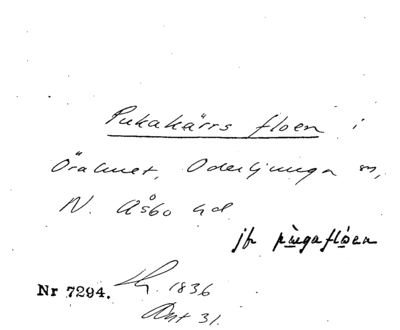 Pukakärrs floen i
Öraluet, Oderljunga sn,
N. Åsbo hd
jfr pùgaflóen
Nr 7294. 1836
Akt 31.